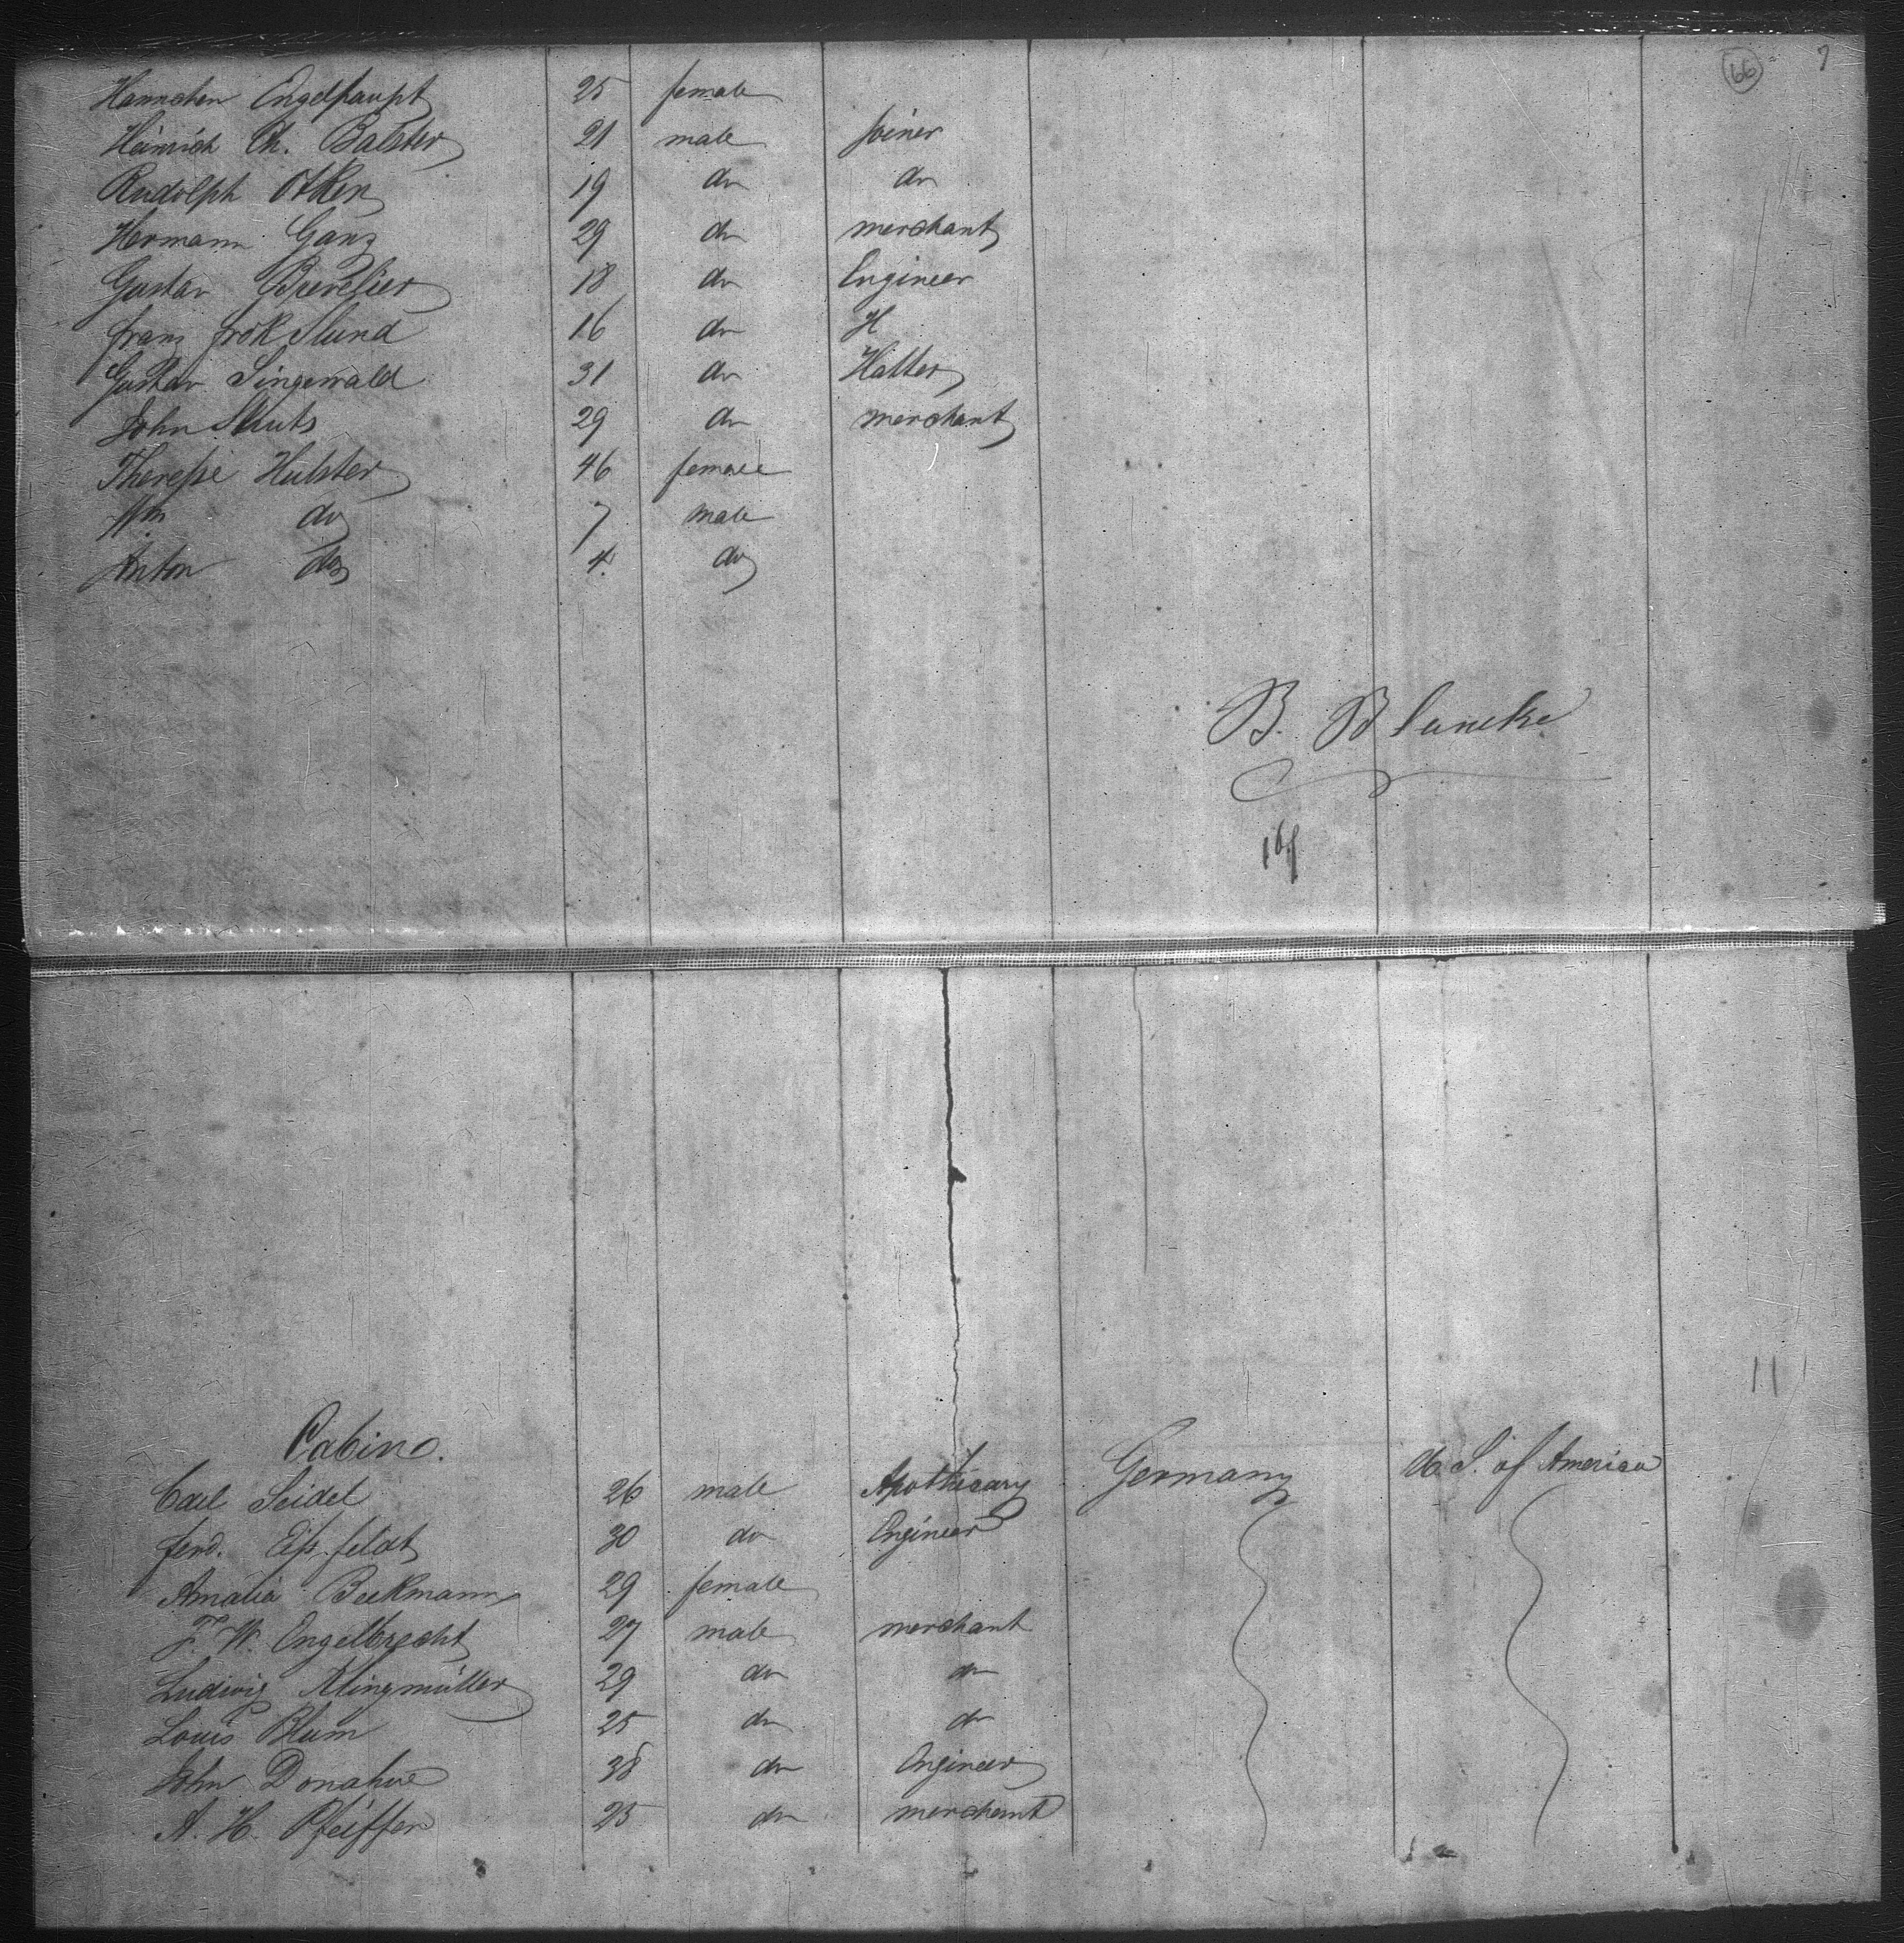 66 7
Hannchen Engelhaupt 25 female
Heinrich Ch. Balster 21 male joiner
Rudolph Otken 19 do do
Hermann Ganz 29 do merchant
Gustav 18 do Engineer
Franz Slund 16 do H
Gustav Singewald 31 do Hatter
John Stuts 29 do merchant
Therese Hulster 46 female
Wm do 7 male
Anton do 4. do
B. Blancke
Cabin.
Carl Seidel 26 male Apothecary Germany U. S. of America
Ferd. Eißfeldt 30 do Engineer
Amalia Beekmann 29 female
F. W. Engelbrecht 27 male merchant
Ludwig Klingmüller 29 do do
Louis Blum 25 do do
John Donahue 38 do Engineer
A. H. Pfeiffer 25 do merchant